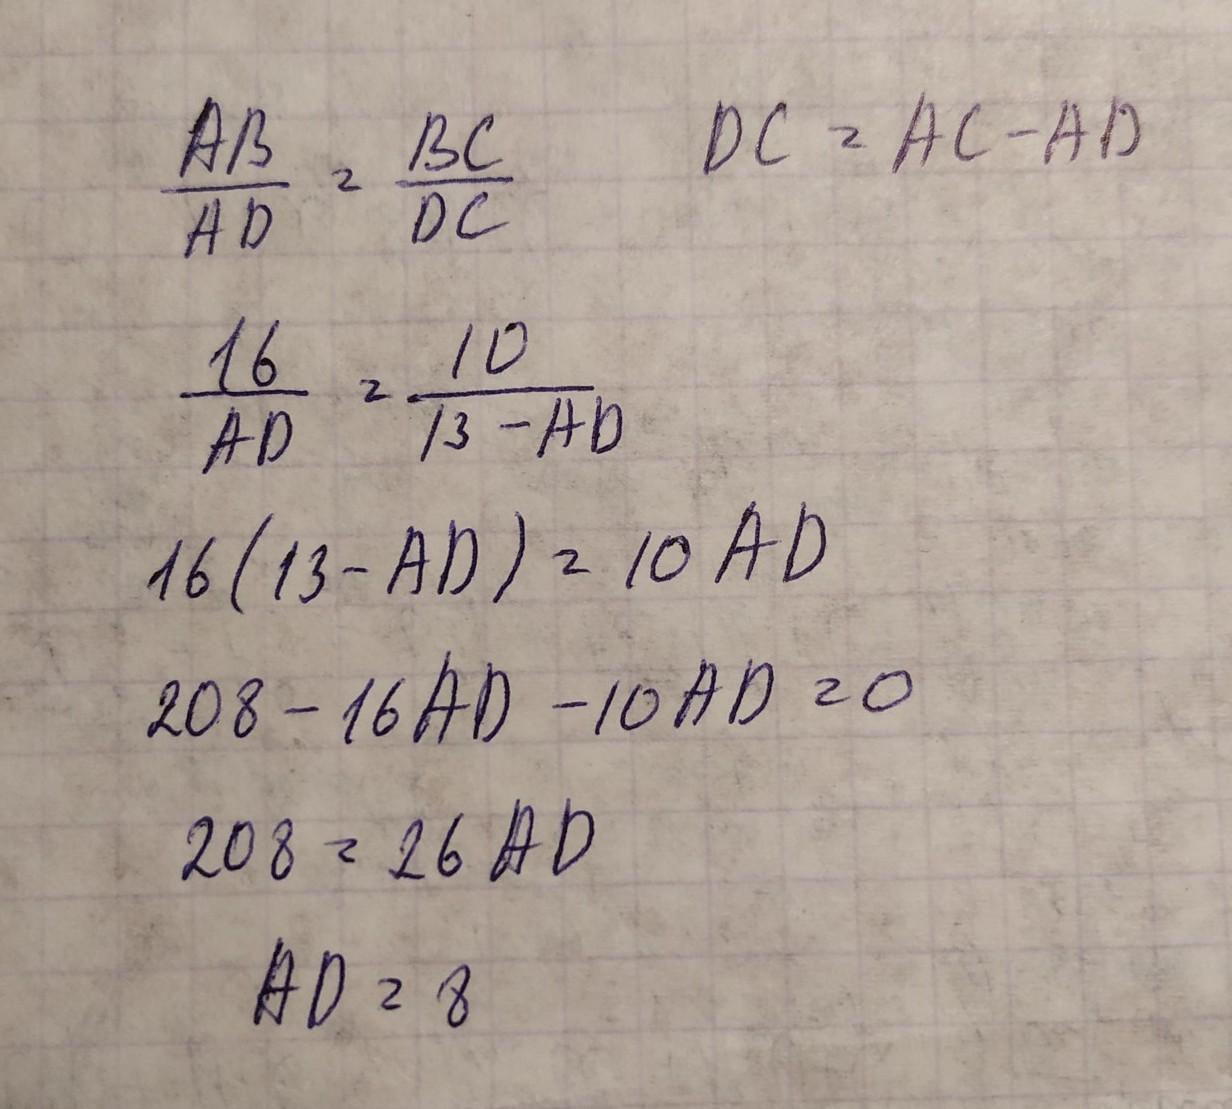 AB/AD = BC/DC DC = AC - AD
16/AD = 10/13 - AD
16(13 - AD) = 10 AD
208 - 16AD - 10AD = 0
208 = 26 AD
AD = 8